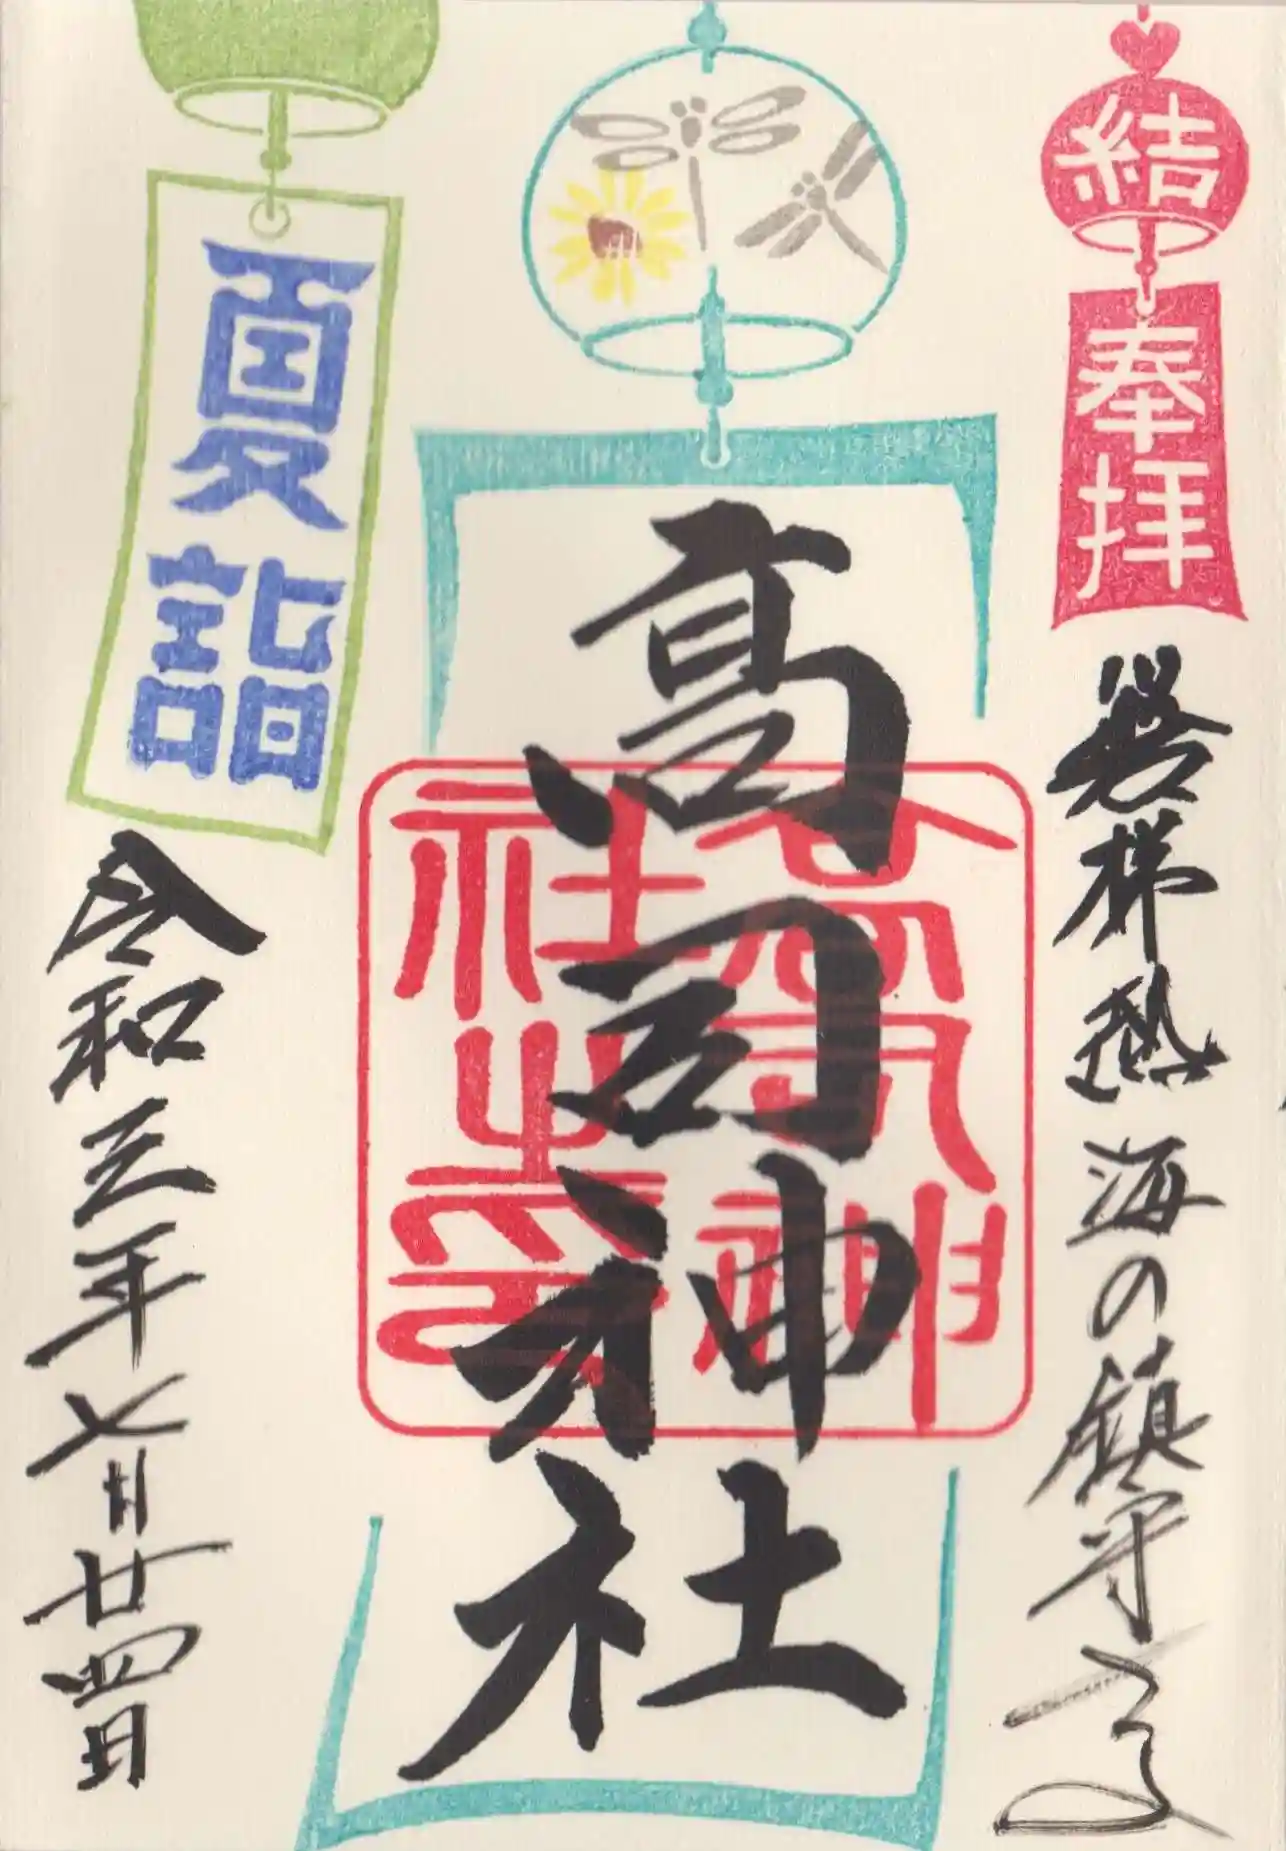 結
奉拝
磐梯熱海の鎮守
高司神社
高司神
社之印
夏詣
令和三年七月廿四日